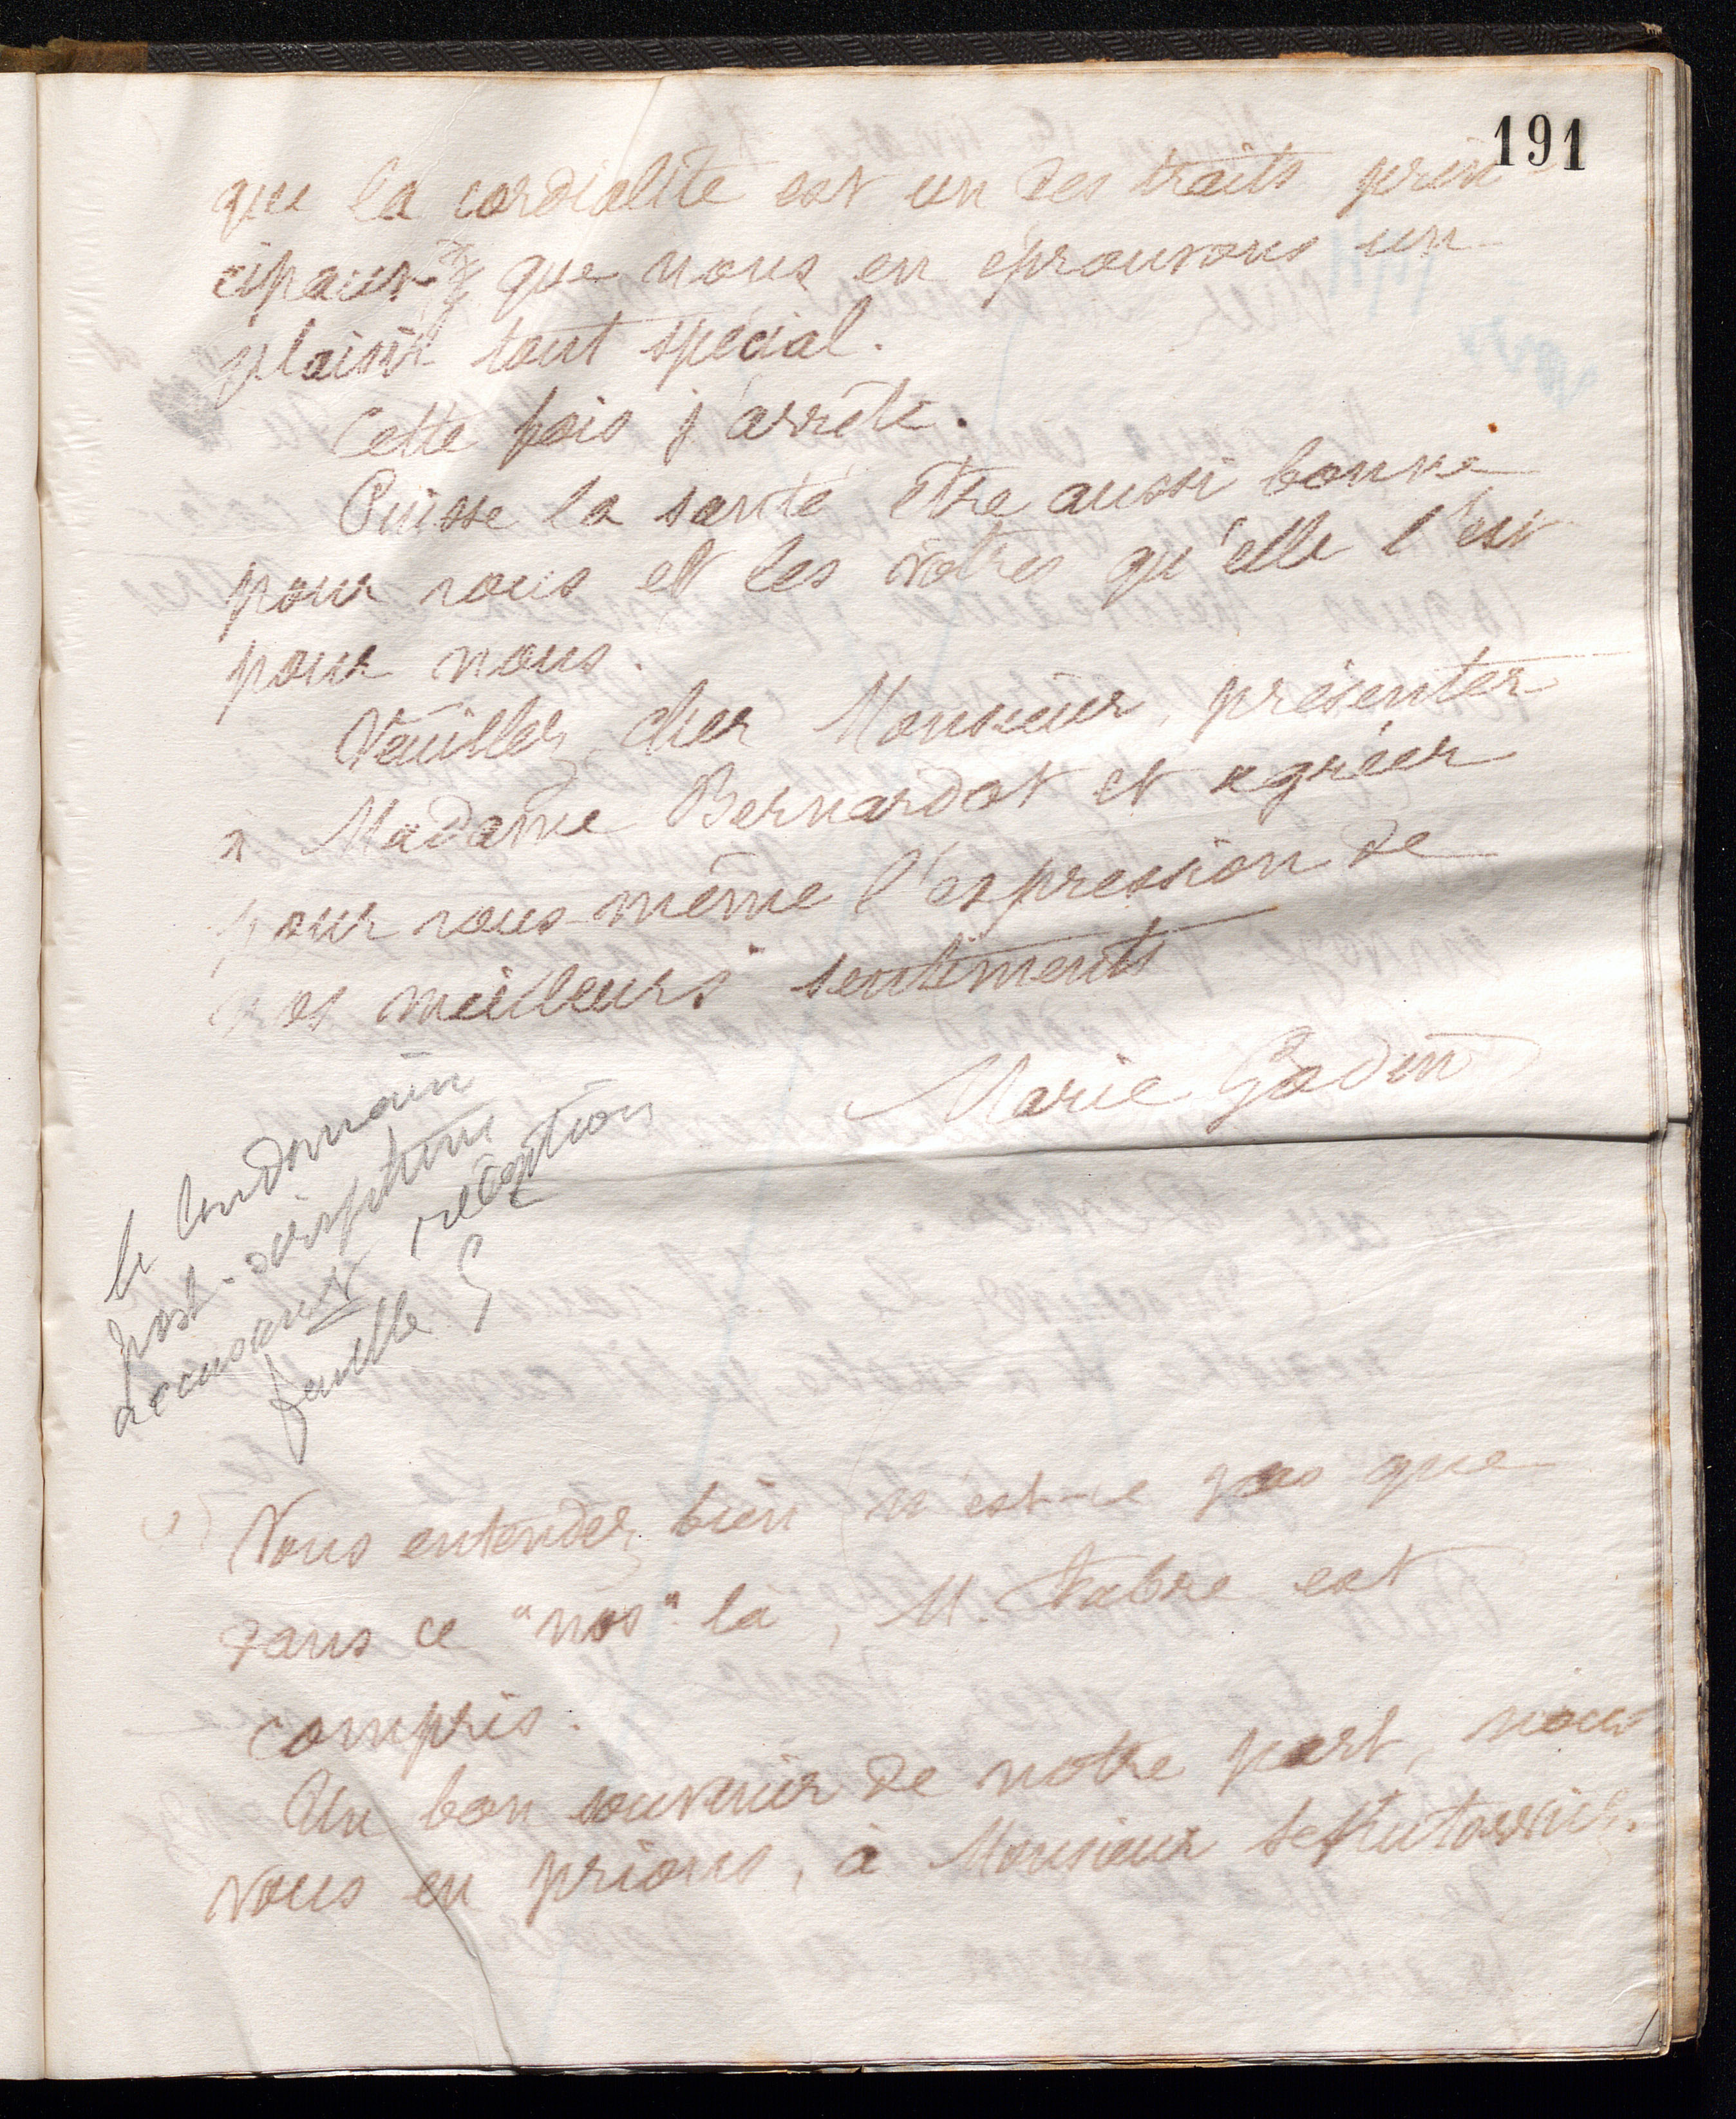 191
que la cordialité est un des traits prin
cipaux que nous en éprouvons un
plaisir tout spécial.
Cette fois j'arrête.
Puisse la santé être aussi bonne
pour vous et les vôtres qu'elle l'est
pour nous.
Veuillez, cher Monsieur, présenter
à Madame Bernardot et agréer
pour vous-même l'expression de
nos meilleurs sentiments
Marie Godin
le lendemain
post-scriptum
accusant réception
feuille
(1) Vous entendez bien n'est-ce pas que
dans ce "nos" là, M. Fabre est
compris.
Un bon souvenir de notre part, nous
vous en prions, à Monsieur Sekutowicz.